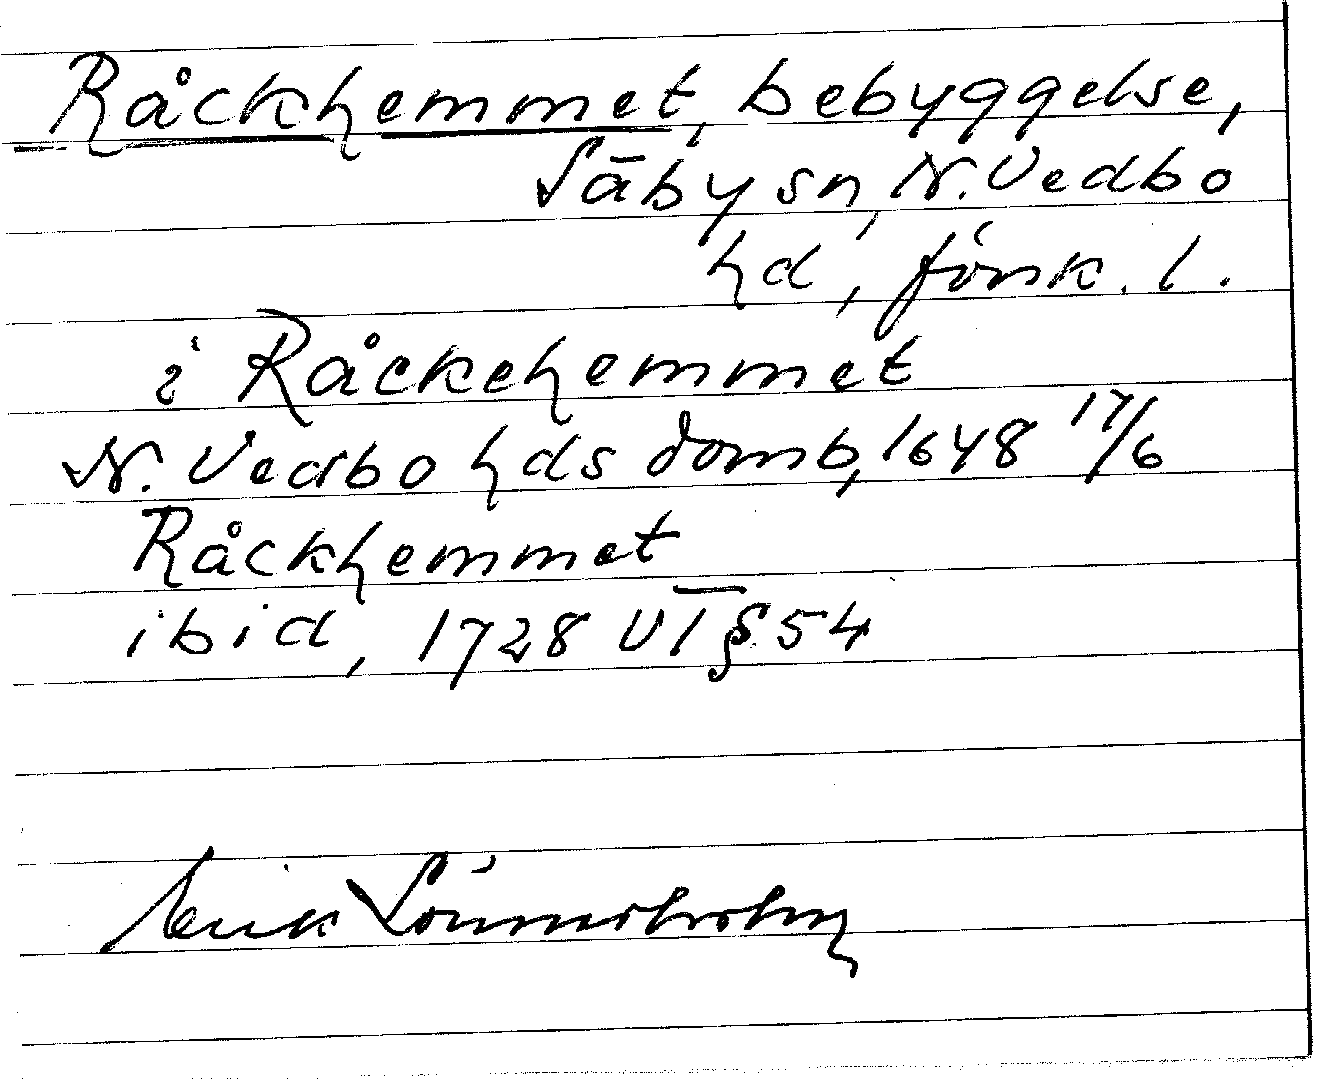 Råckhemmet, bebyggelse,
Säby sn, N. Vedbo
hd, Jönk. l.
i Råckehemmet
N. Vedbo hds domb, 1648 17/6
Råckhemmet
ibid, 1728 VI § 54
Erik Lönnerholm